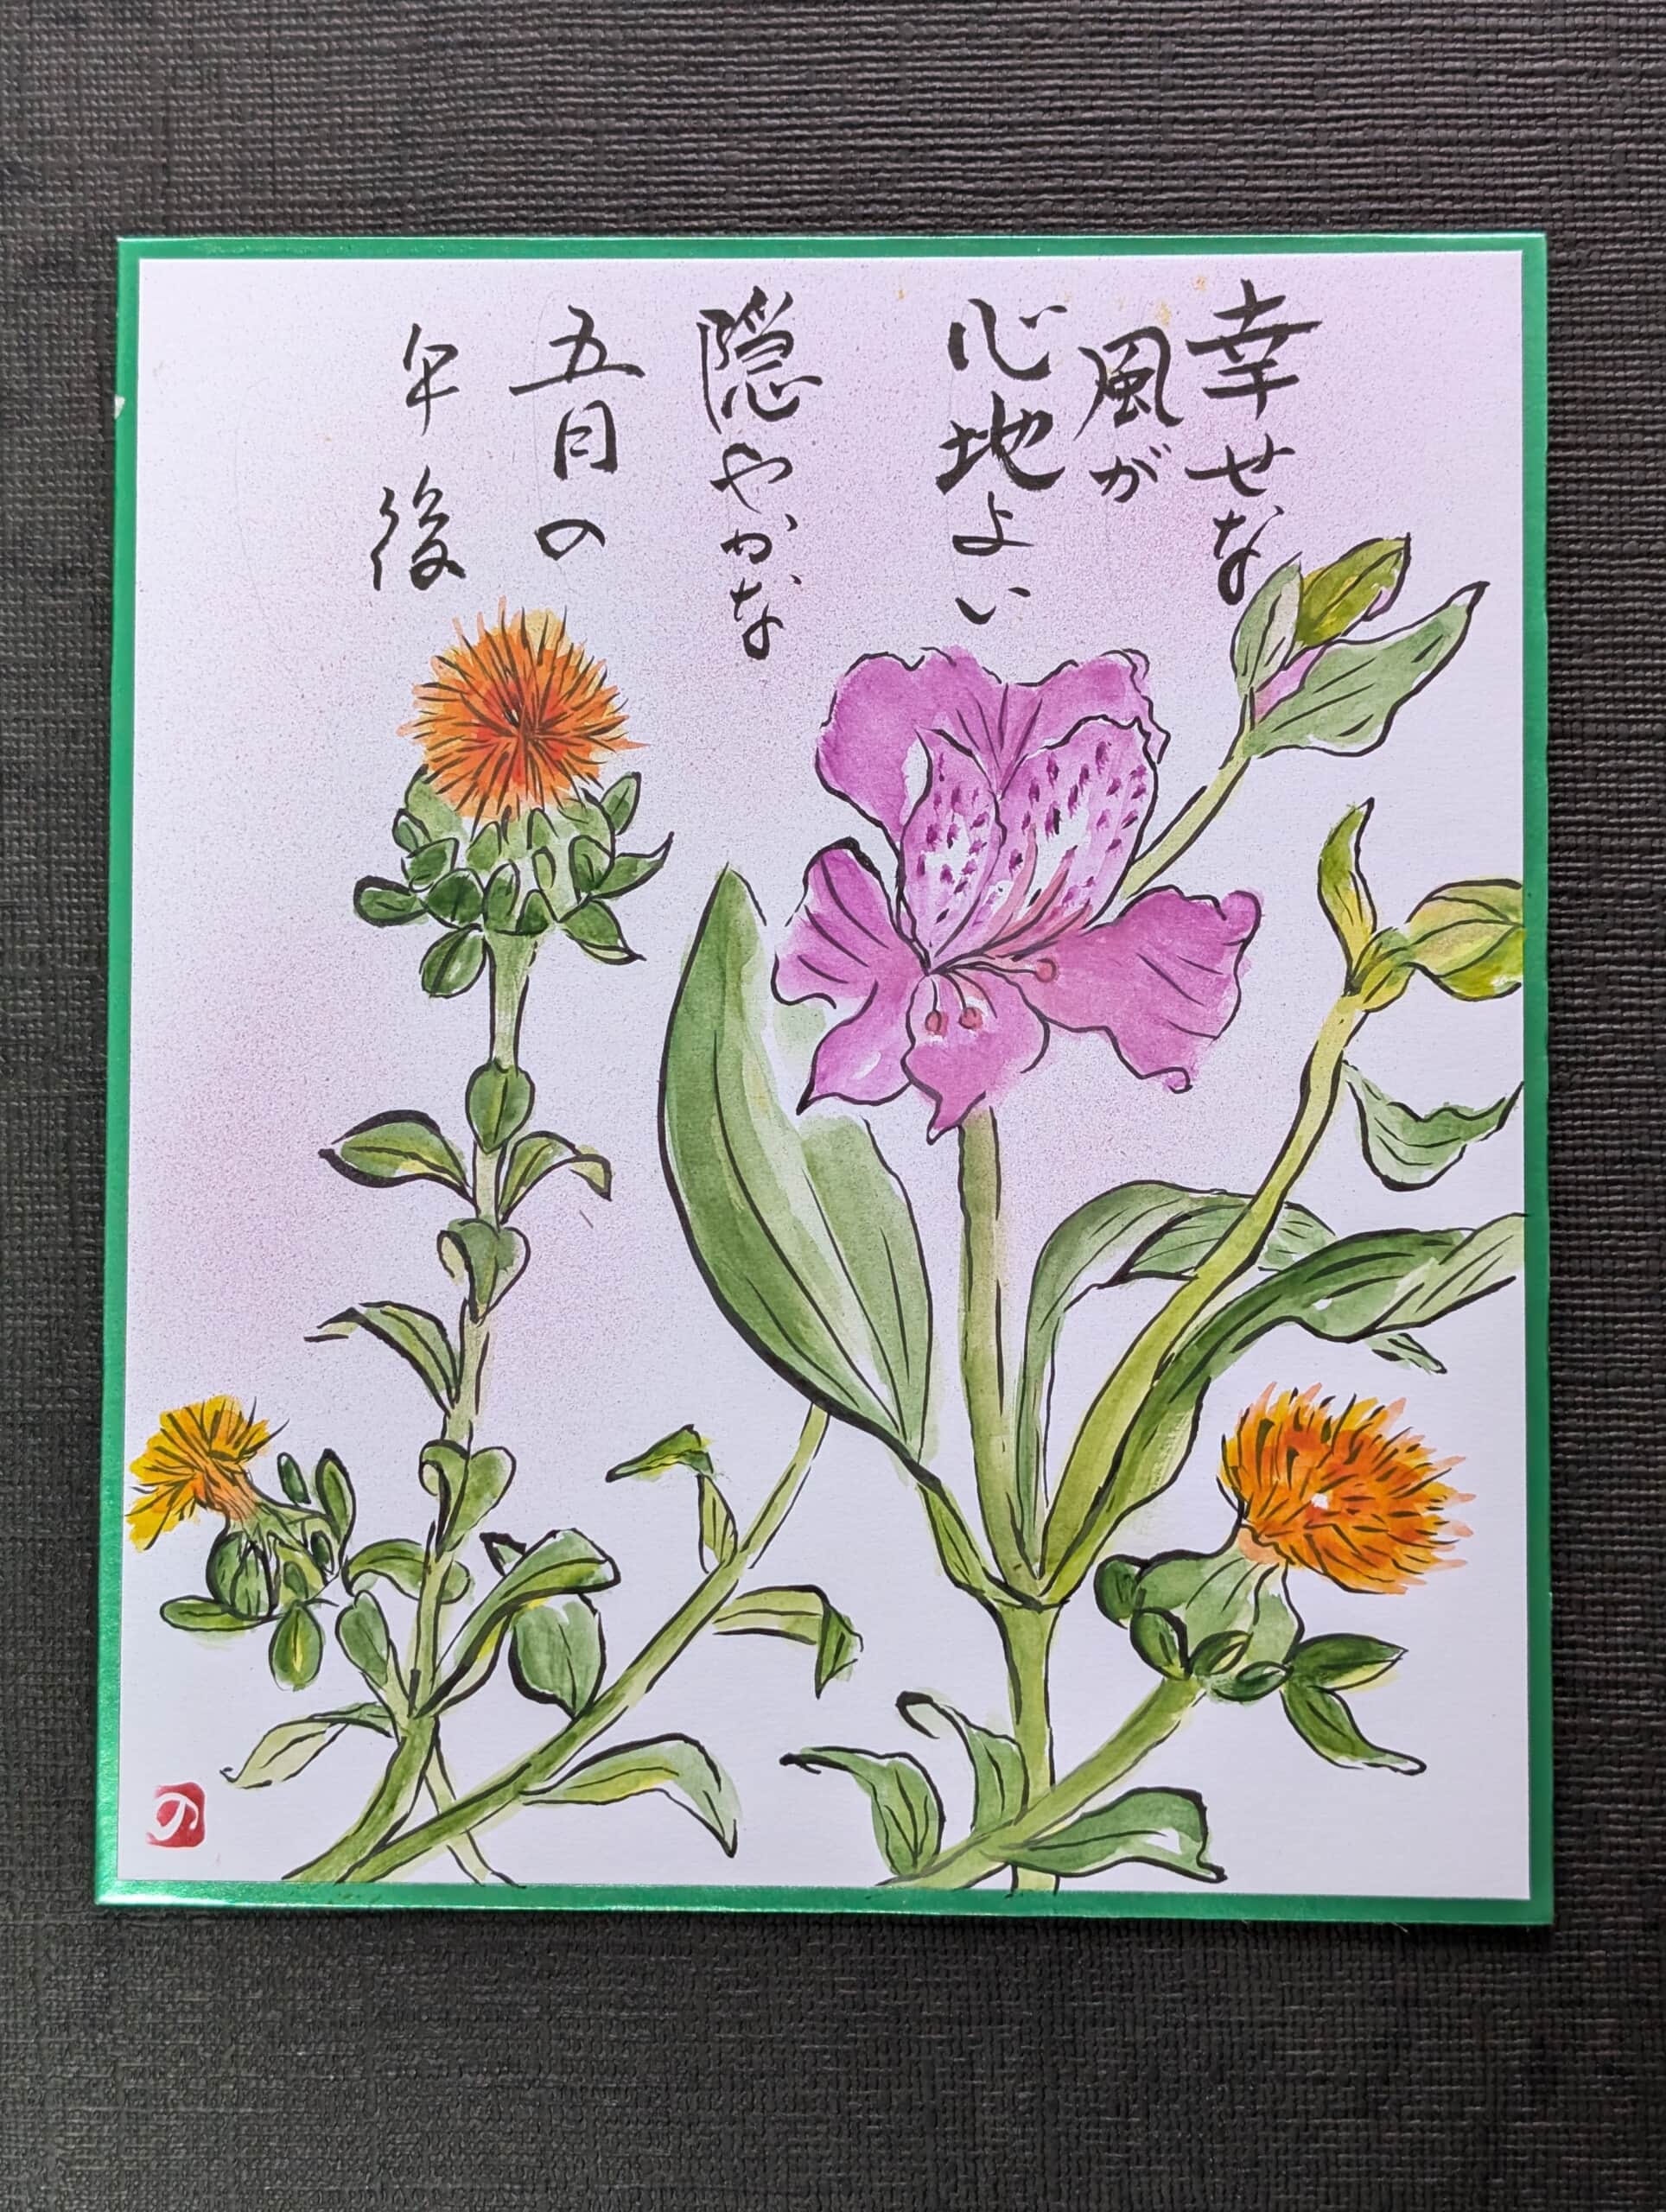 幸せな
風が
心地よい
隠やかな
五月の
午後
の